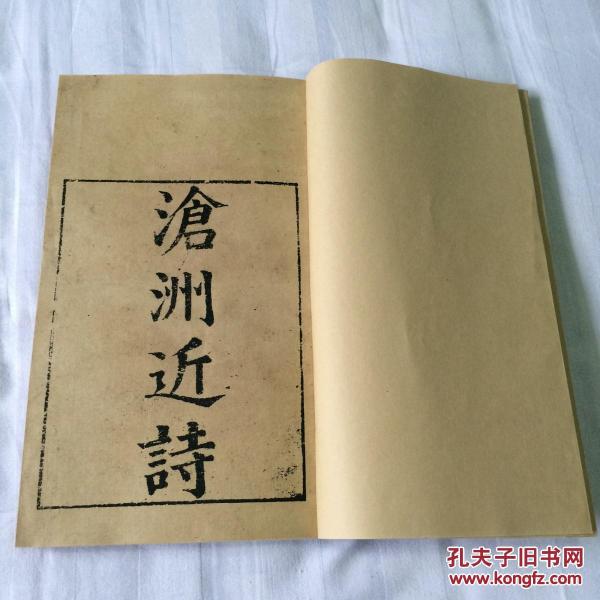 滄洲近詩
孔夫子旧书网
www.kongfz.com